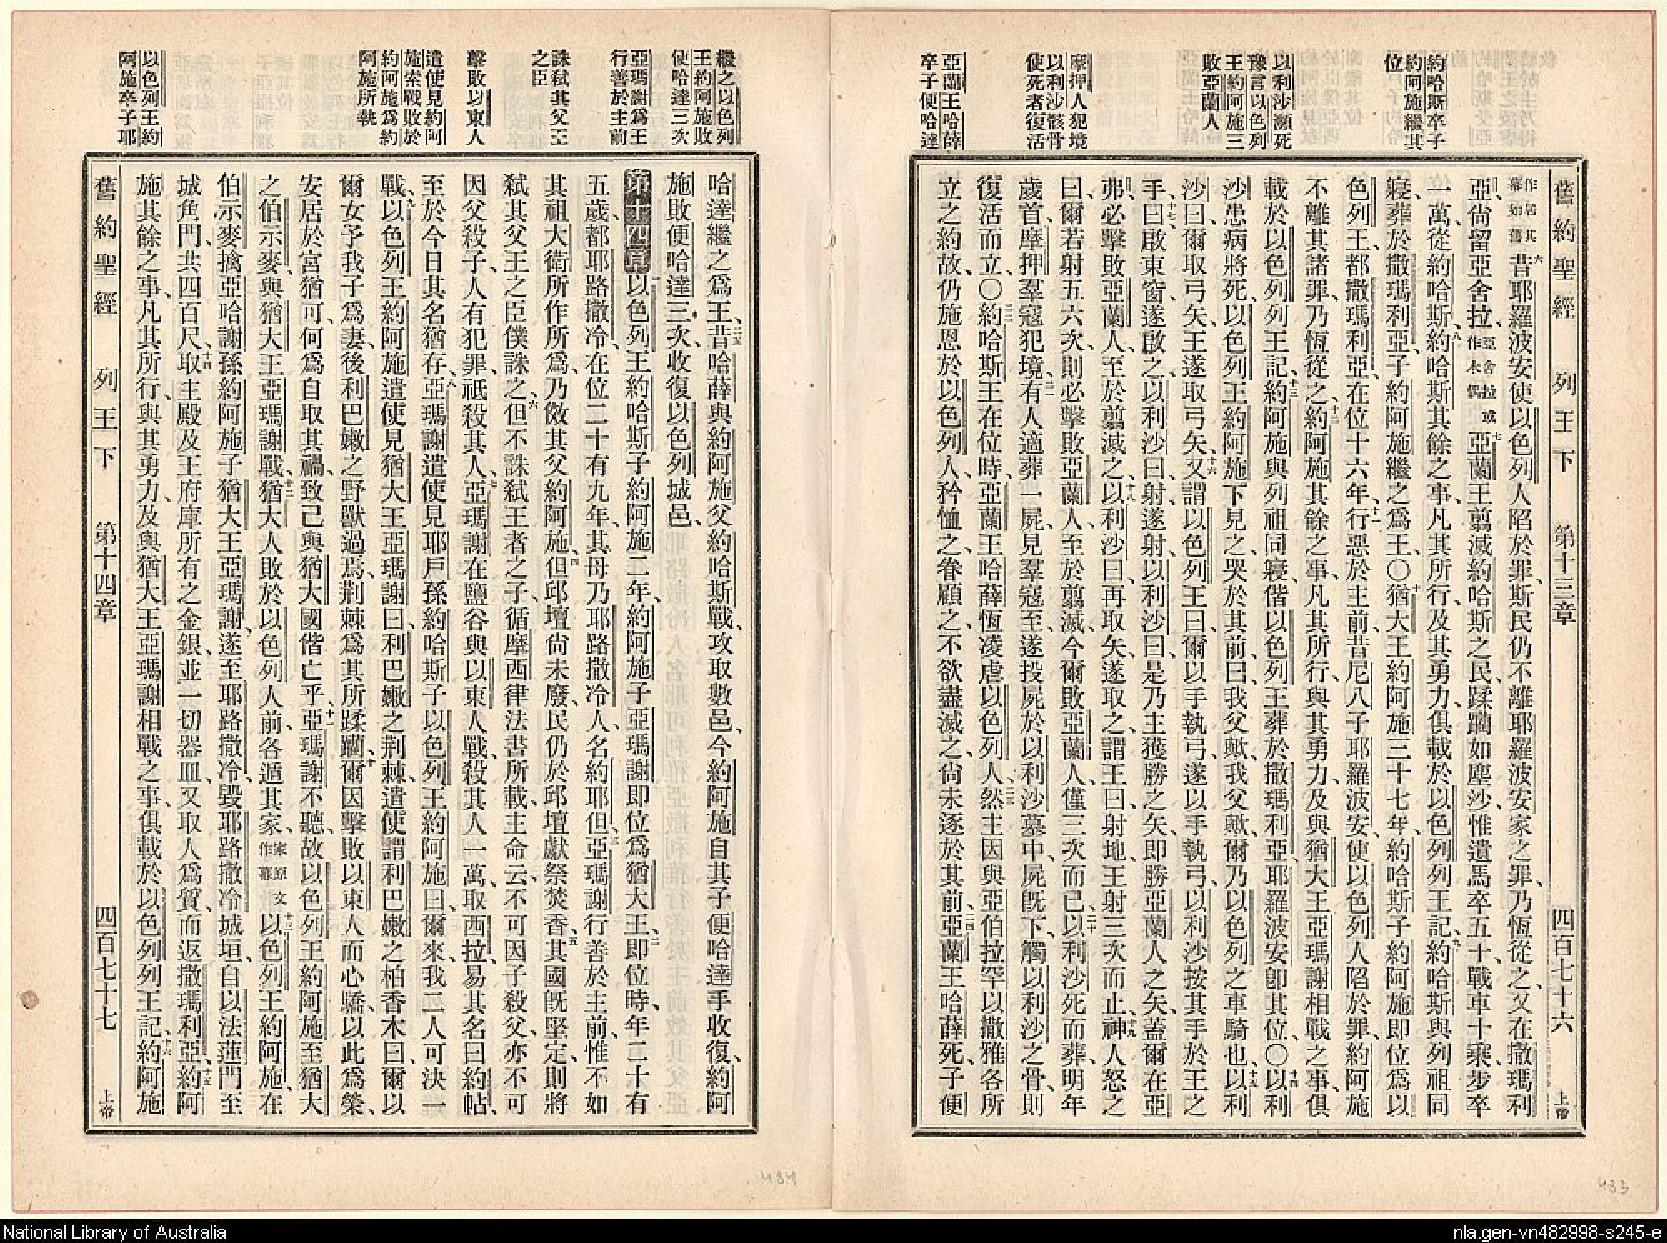 約哈斯卒子
約阿施繼其
位
以利沙瀕死
豫言以色列
王約阿施三
敗亞蘭人
摩押人犯境
以利沙骸骨
使死者復活
亞蘭王哈薛
卒子便哈達
舊約聖經 列王下 第十三章 四百七十六 上帝
昔耶羅波安使以色列人陷於罪、斯民仍不離耶羅波安家之罪、乃恆從之、又在撒瑪利
亞尚留亞舍拉、亞舍拉或作木偶 亞蘭王翦滅約哈斯之民、蹂躪如塵沙、惟遺馬卒五十、戰車十乘、步卒
一萬、從約哈斯、約哈斯其餘之事、凡其所行、及其勇力、俱載於以色列列王記、約哈斯與列祖同
寢、葬於撒瑪利亞、子約阿施繼之爲王、〇猶大王約阿施三十七年、約哈斯子約阿施即位爲以
色列王、都撒瑪利亞、在位十六年、行惡於主前、昔尼八子耶羅波安、使以色列人陷於罪、約阿施
不離其諸罪、乃恆從之、約阿施其餘之事、凡其所行、與其勇力、及與猶大王亞瑪謝相戰之事、俱
載於以色列列王記、約阿施與列祖同寢、偕以色列王葬於撒瑪利亞、耶羅波安卽其位、〇以利
沙患病將死、以色列王約阿施下見之、哭於其前曰、我父歟、我父歟、爾乃以色列之車騎也、以利
沙曰、爾取弓矢、王遂取弓矢、又謂以色列王曰、爾以手執弓、遂以手執弓、以利沙按其手於王之
手、曰、啟東窗、遂啟之、以利沙曰、射、遂射、以利沙曰、是乃主獲勝之矢、即勝亞蘭人之矢、蓋爾在亞
弗必擊敗亞蘭人、至於翦滅之、以利沙曰、再取矢、遂取之、謂王曰、射地、王射三次而止、神人怒之
曰、爾若射五六次、則必擊敗亞蘭人、至於翦滅、今爾敗亞蘭人僅三次而已、以利沙死而葬、明年
歲首、摩押羣寇犯境、有人適葬一屍、見羣寇至、遂投屍於以利沙墓中、屍旣下、觸以利沙之骨、則
復活而立、〇約哈斯王在位時、亞蘭王哈薛恆凌虐以色列人、然主因與亞伯拉罕以撒雅各所
立之約、故仍施恩於以色列人、矜恤之、眷顧之、不欲盡滅之、尚未逐於其前、亞蘭王哈薛死、子便
繼之以色列
王約阿施敗
便哈達三次
亞瑪謝爲王
行善於主前
誅弒其父王
之臣
擊敗以東人
遣使見約阿
施索戰敗於
約阿施爲約
阿施所執
以色列王約
阿施卒子耶
哈達繼之爲王、昔哈薛與約阿施父約哈斯戰、攻取數邑、今約阿施自其子便哈達手收復、約阿
施敗便哈達三次、收復以色列城邑、
第十四章 以色列王約哈斯子約阿施二年、約阿施子亞瑪謝即位爲猶大王、即位時、年二十有
五歲、都耶路撒冷、在位二十有九年、其母乃耶路撒冷人、名約耶但、亞瑪謝行善於主前、惟不如
其祖大衛所作、所爲乃傚其父約阿施、但邱壇尚未廢、民仍於邱壇獻祭焚香、其國旣堅定、則將
弒其父王之臣僕誅之、但不誅弒王者之子、循摩西律法書所載、主命云、不可因子殺父、亦不可
因父殺子、人有犯罪、祇殺其人、亞瑪謝在鹽谷與以東人戰、殺其人一萬、取西拉、易其名曰約帖、
至於今日、其名猶存、亞瑪謝遣使見耶戶孫約哈斯子以色列王約阿施、曰、爾來、我二人可決一
戰、以色列王約阿施遣使見猶大王亞瑪謝、曰、利巴嫩之荊棘、遣使謂利巴嫩之柏香木曰、爾以
爾女予我子爲妻、後利巴嫩之野獸過焉、荊棘爲其所蹂躪、爾因擊敗以東人而心驕、以此爲榮、
安居於宮猶可、何爲自取其禍、致己與猶大國偕亡乎、亞瑪謝不聽、故以色列王約阿施至猶大
之伯示麥、與猶大王亞瑪謝戰、猶大人敗於以色列人前、各遁其家、家原文作幕 以色列王約阿施、在
伯示麥擒亞哈謝孫約阿施子猶大王亞瑪謝、遂至耶路撒冷、毀耶路撒冷城垣、自以法蓮門至
城角門、共四百尺、取主殿及王府庫所有之金銀、並一切器皿、又取人爲質、而返撒瑪利亞、約阿
施其餘之事、凡其所行、與其勇力、及與猶大王亞瑪謝相戰之事、俱載於以色列列王記、約阿施
舊約聖經 列王下 第十四章 四百七十七 上帝
484
483
National Library of Australia
nla.gen-vn482998-s245-e